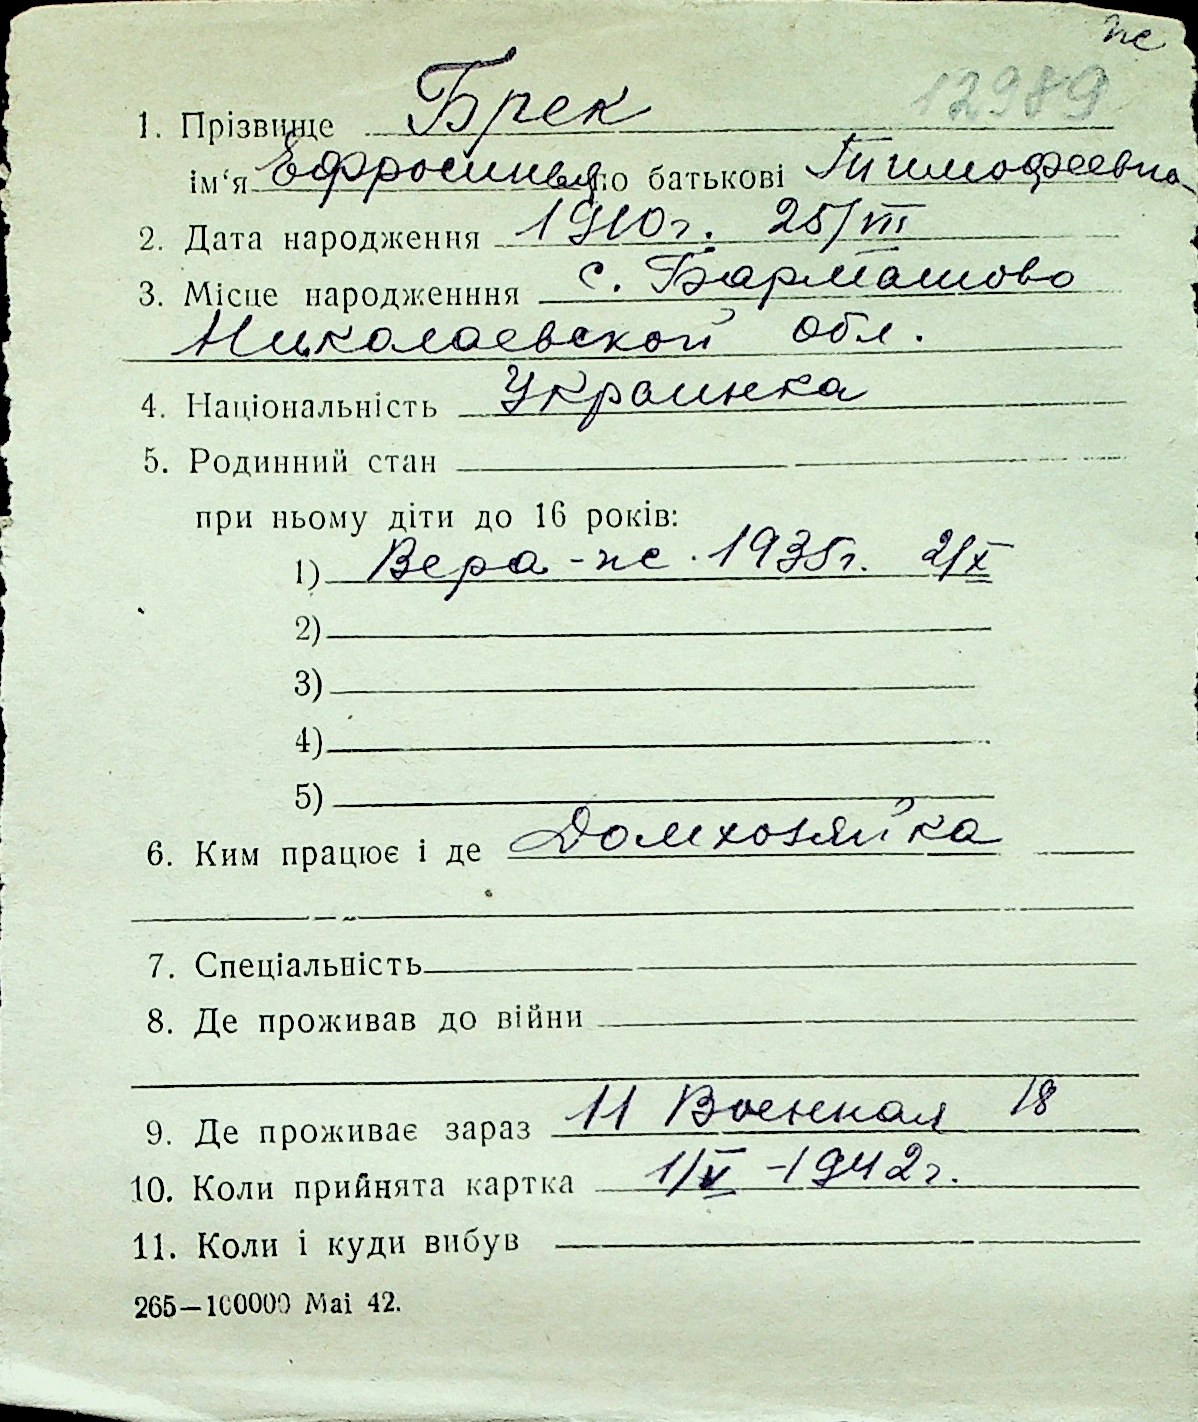 жс
12989
1. Прізвище Брек
ім‘я Ефросинья по батькові Тимофеевна
2. Дата народження 1910 г. 25/III
3. Місце народженння с. Бармашово
Николаевской обл.
4. Національність Украинка
5. Родинний стан
при ньому діти до 16 років:
1) Вера - жс. 1935 г. 2/X
2)
3)
4)
5)
6. Ким працює і де Домхозяйка
7. Спеціальність
8. Де проживав до війни
9. Де проживає зараз 11 Военная 18
10. Коли прийнята картка 1/V - 1942 г.
11. Коли і куди вибув
265—100000 Mai 42.